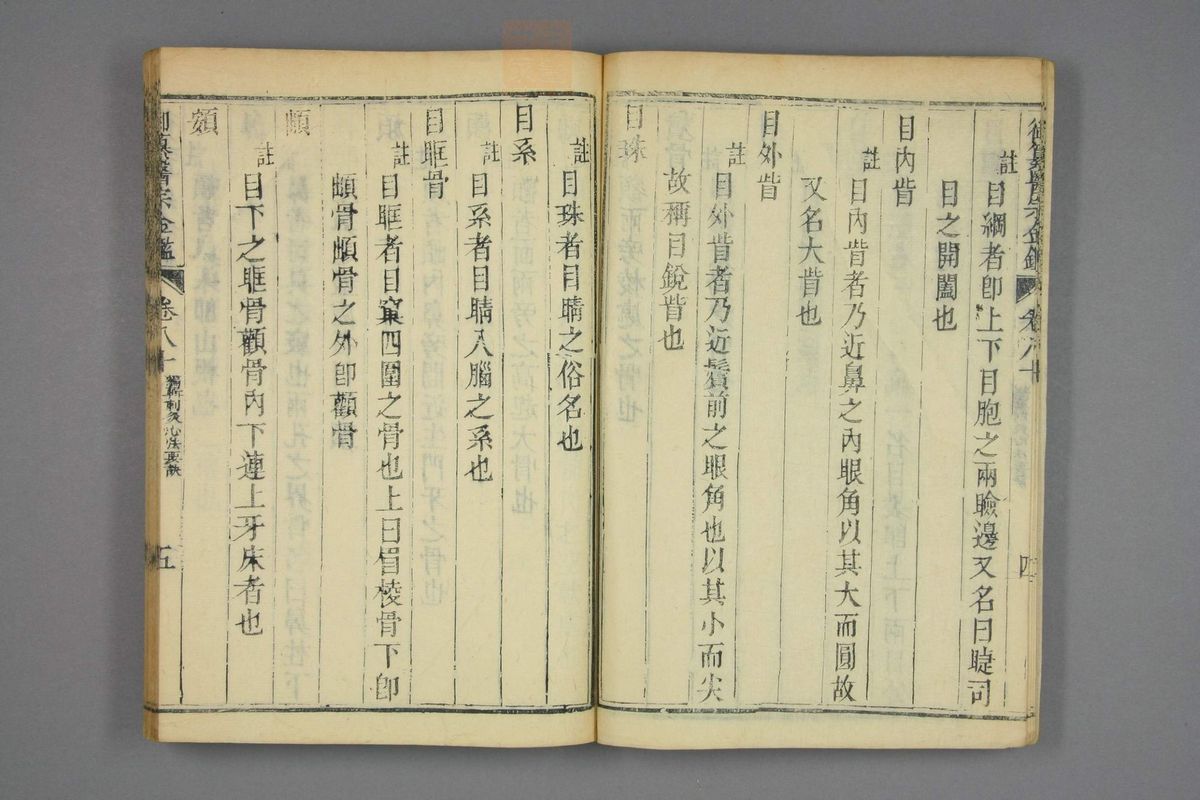 御纂醫宗金鑑 卷八十 四
註目綱者卽上下目胞之兩瞼邊又名曰睫司
目之開闔也
目內眥
註目內眥者乃近鼻之內眼角以其大而圓故
又名大眥也
目外眥
註目外眥者乃近鬢前之眼角也以其小而尖
故稱目銳眥也
目珠
註目珠者目睛之俗名也
目系
註目系者目睛入腦之系也
目眶骨
註目眶者目窠四圍之骨也上曰眉棱骨下卽
䪼骨䪼骨之外卽顴骨
䪼
註目下之眶骨顴骨內下連上牙床者也
頞
御纂醫宗金鑑 卷八十 編輯刺灸心法要訣 五